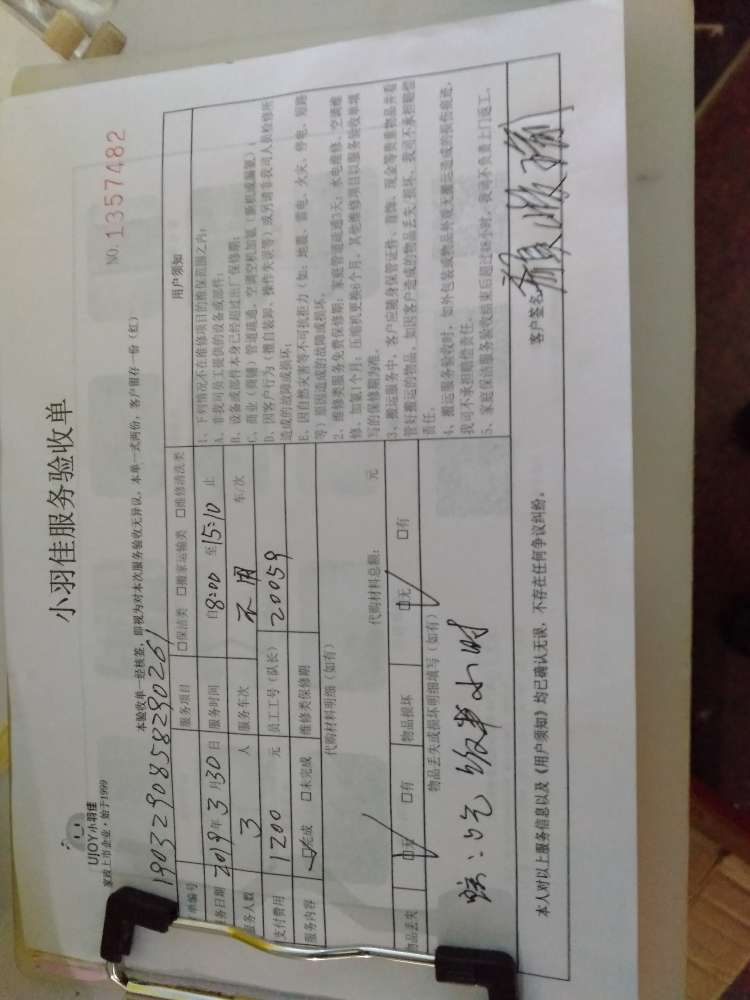 UJOY小羽佳
家政上市企业·始于1999
小羽佳服务验收单
NO. 1357482
本验收单一经核签，即视为对本次服务验收无异议。本单一式两份，客户留存一份（红）
单编号 1903290858290261
服务项目 □保洁类 □搬家运输类 □维修清洗类
务日期 2019年3月30日 服务时间 自8:00 至15:10 止
服务人数 3 人 服务车次 不用 车/次
支付费用 1200 元 员工工号（队长） 20059
服务内容 ☑完成 □未完成 维修类保修期
代购材料明细（如有）
代购材料总额： 元
物品丢失 ☑无 □有 物品损坏 ☑无 □有
物品丢失或损坏明细填写（如有）
吃饭半小时
用户须知
1、下列情况不在维修项目的维保范围之内：
A、非我司员工提供的设备或部件；
B、设备或部件本身已经超过出厂保修期；
C、商业（商铺）管道疏通、空调空机加氨（新机或漏氨）；
D、因客户行为（擅自装卸、操作失误等）或另请非我司人员检修所
造成的故障或损坏；
E、因自然灾害等不可抗拒力（如：地震、雷电、火灾、停电、短路
等）原因造成的故障或损坏。
2、维修类服务免费保修期：家庭管道疏通3天；水电维修、空调维
修、加氨1个月；压缩机更换6个月，其他维修项目以服务验收单填
写的保修期为准。
3、搬运服务中，客户应随身保管证件、首饰、现金等贵重物品并看
管好搬运的物品，如因客户造成的物品丢失/损坏，我司不承担赔偿
责任。
4、搬运服务验收时，如外包装或物品外观无搬运造成的损伤痕迹，
我司不承担赔偿责任。
5、家庭保洁服务验收结束后超过48小时，我司不负责上门返工。
本人对以上服务信息以及《用户须知》均已确认无误，不存在任何争议纠纷。
客户签名